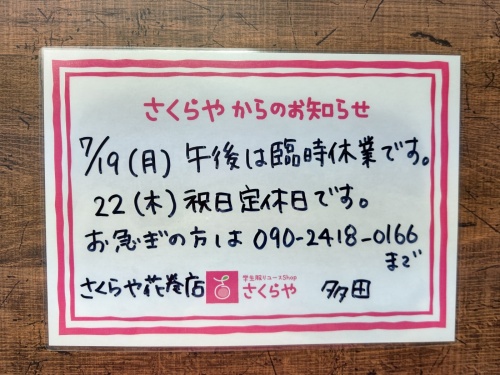 さくらや からのお知らせ
7/19(月) 午後は臨時休業です。
22(木) 祝日定休日です。
お急ぎの方は 090-2418-0166
まで
さくらや花巻店
学生服リユースShop
さくらや
多田